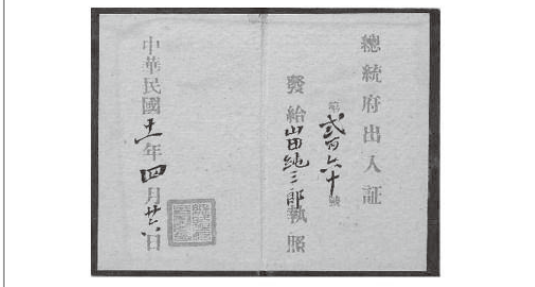 總統府出入証
第貳百六十號
發給山田純三郎執照
中華民國十一年四月廿六日